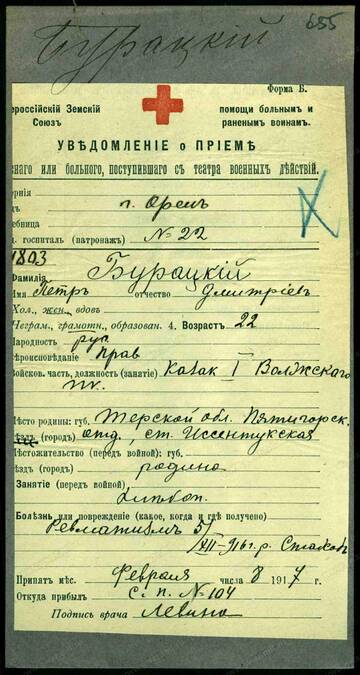 655
Бурацкій
Форма Б.
ероссійскій Земскій
Союзъ
помощи больнымъ и
раненымъ воинамъ.
УВѢДОМЛЕНІЕ о ПРІЕМѢ
наго или больного, поступившаго съ театра военныхъ дѣйствій.
ернія
г. Орелъ
ебница
госпиталь (патронажъ) №22
1803
Фамилія Бурацкій
Имя Петръ отчество Дмитріев
Хол., жен., вдов.
Неграм., грамотн., образован. 4. Возраст 22
Народность рус.
Вѣроисповѣданіе Прав
Войсков. часть, должность (занятіе) Казак I Волжского
пк.
Мѣсто родины: губ. Терской обл. Пятигорск.
(городъ) отд., ст. Иссентукская
Мѣстожительство (передъ войной): губ.
ѣздъ (городъ) родина
Занятіе (передъ войной),
хлѣбоп.
Болѣзнь или поврежденіе (какое, когда и гдѣ получено)
Ревматизмъ 5/
XII-916 г. р.
Принятъ мѣс. Февраля числа 8 1917 г.
Откуда прибылъ с. п. №104
Подпись врача Левина